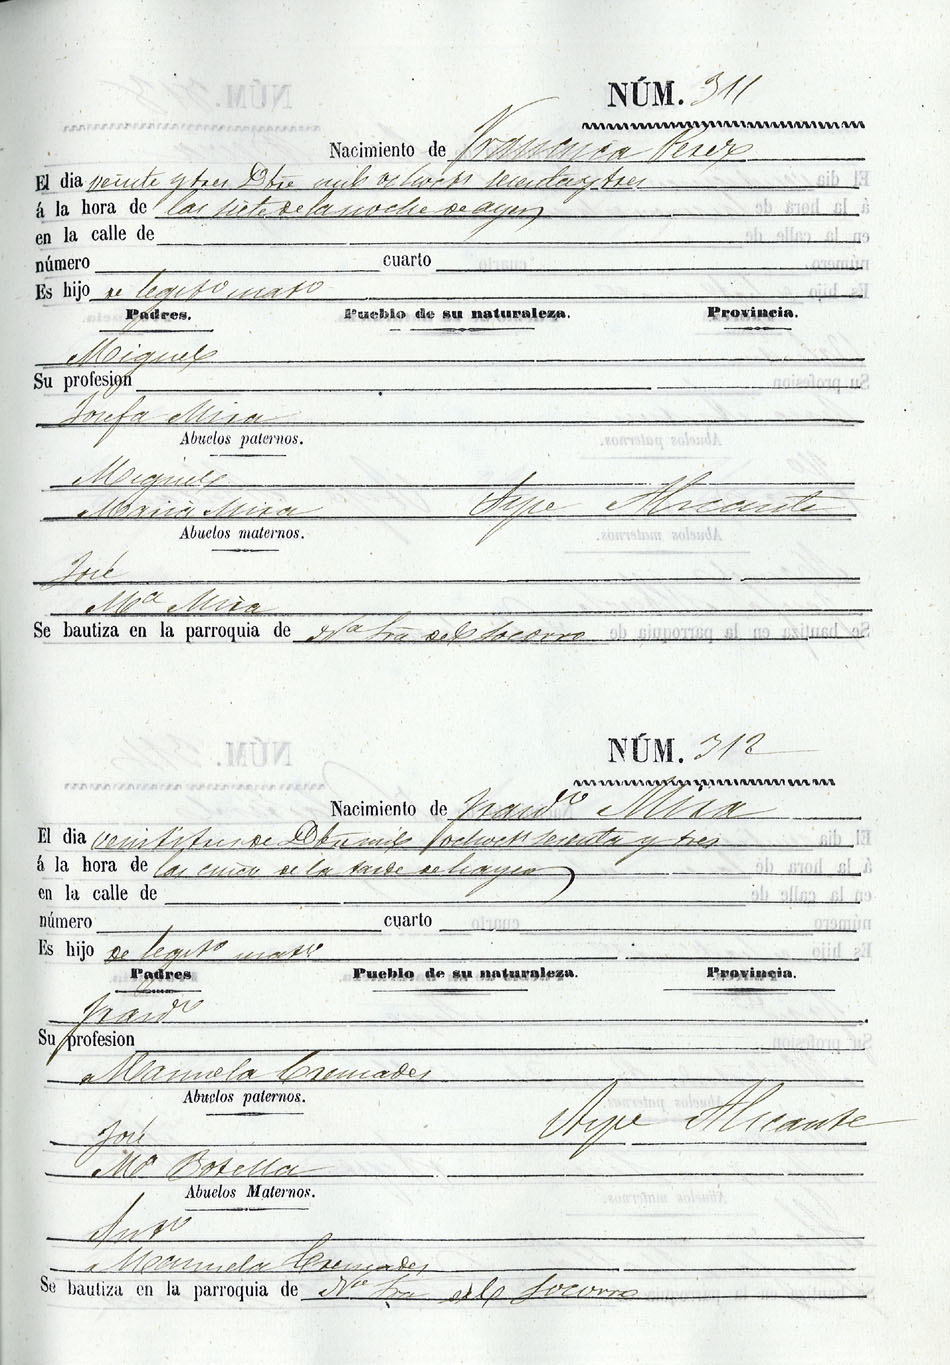 NÚM. 311
Nacimiento de Francisca Perez
El dia veinte y tres Dbre mil ochocs setenta y tres
á la hora de las siete de la noche de ayer
en la calle de
número cuarto
Es hijo de legito mato
Padres. Pueblo de su naturaleza. Provincia.
Miguel
Su profesion
Josefa Mira
Abuelos paternos.
Miguel
Maria Mira Aspe Alicante
Abuelos maternos.
José
Ma Mira
Se bautiza en la parroquia de Na Sra del Socorro
NÚM. 312
Nacimiento de Franco Mira
El dia veintitres de Dbre mil ochocs setenta y tres
á la hora de las cinco de la tarde de hayer
en la calle de
número cuarto
Es hijo de legito mato
Padres Pueblo de su naturaleza. Provincia.
Franco
Su profesion
Manuela Cremades
Abuelos paternos.
José Aspe Alicante
Ma Botella
Abuelos Maternos.
Anto
Manuela Cremades
Se bautiza en la parroquia de Na Sra del Socorro